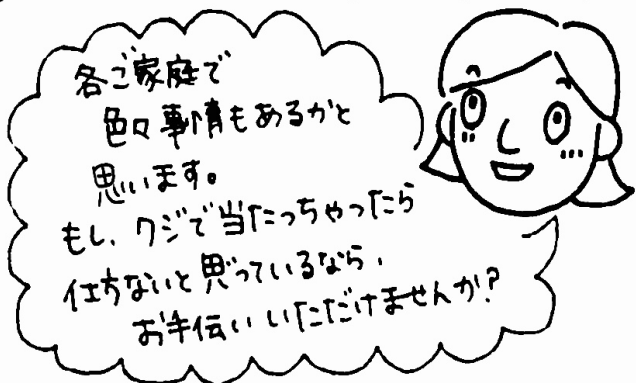 各ご家庭で
色々事情もあるかと
思います。
もし、クジで当たっちゃったら
仕方ないと思っているなら、
お手伝いいただけませんか?